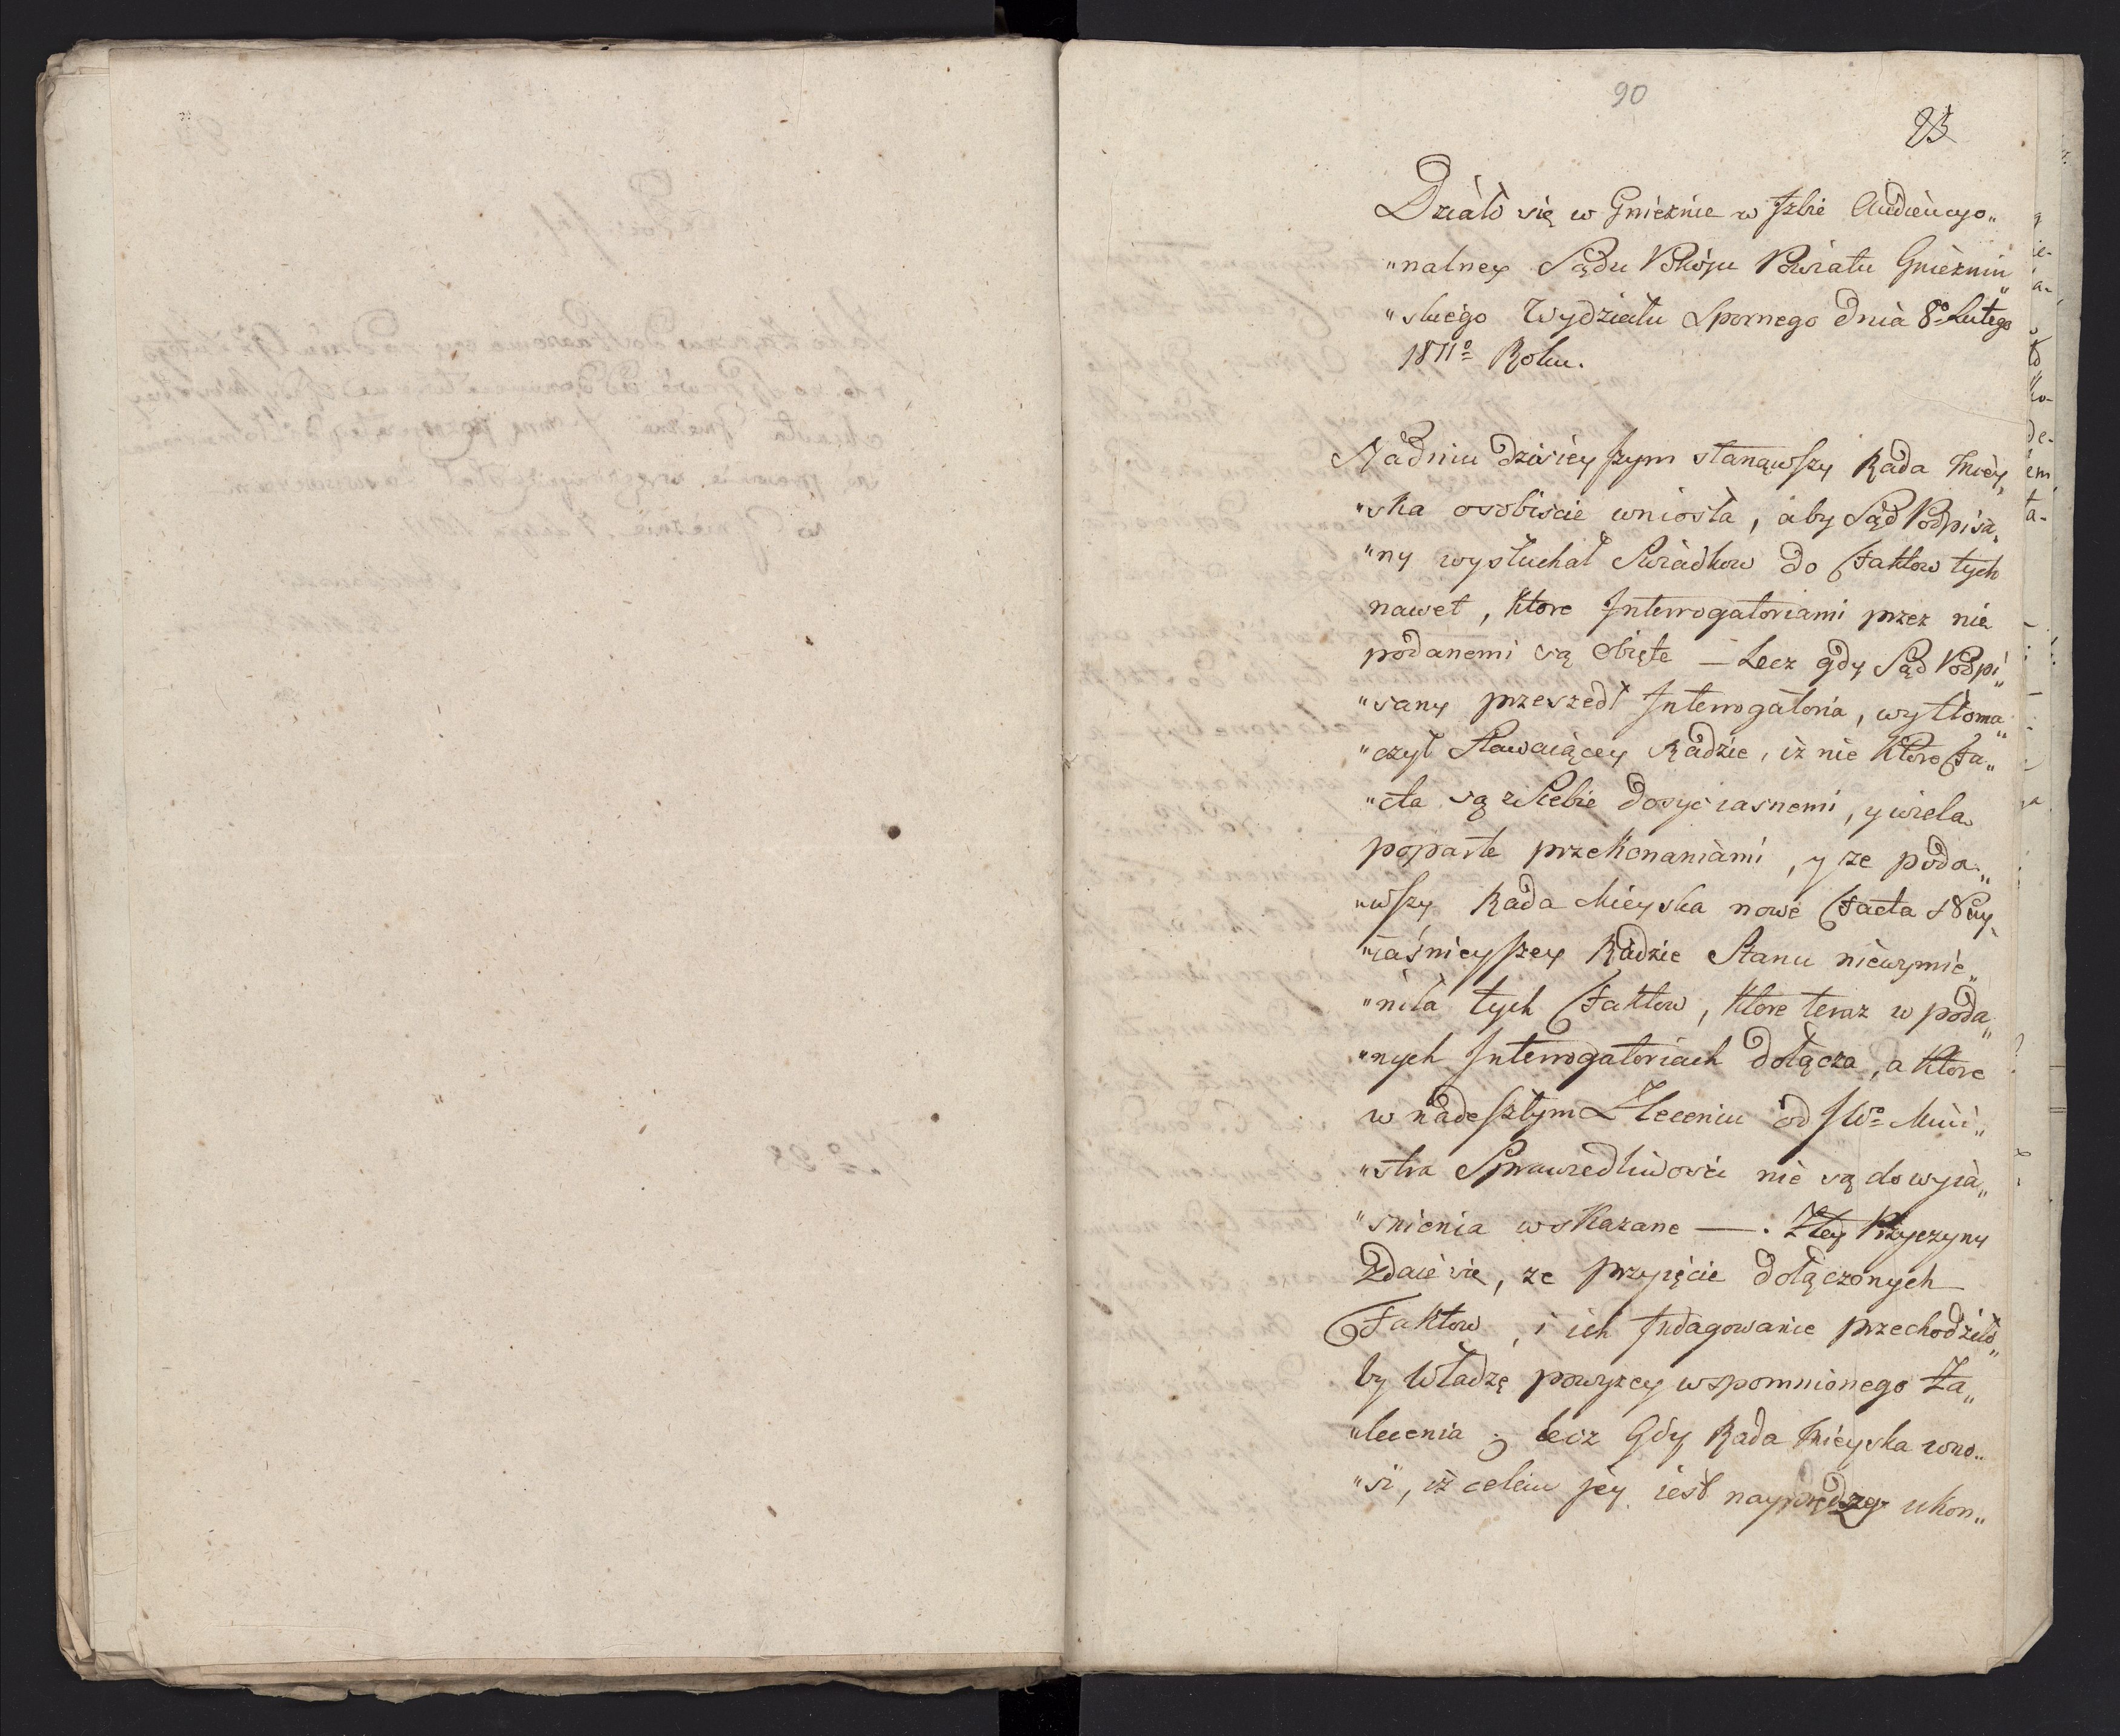 90
Działo się w Gnieznie w Izbie Audiencyo„
„nalney Sądu Pokoju Powiatu Gnieznin„
„skiego Wydziału Spornego dnia 8º Lutego
1811º Roku.
Na dniu dzisieyszym stanąwszy Rada Miey„
„ska osobiscie wniosła, aby Sąd Podpisa„
„ny wysłuchał Swiadkow do Faktow tych
nawet, ktore Interrogatoriami przez nię
podanemi są obięte — Lecz gdy Sąd Podpi„
„sany przeszedł Interrogatoria, wytłoma„
„czył Stawaiącey Radzie, iż nie ktore Fa„
„cta są z Siebie dosyc iasnemi, y wiela
poparte przekonaniami, y ze poda„
„wszy Rada Mieyska nowe Facta Nay„
„iaśnieyszey Radzie Stanu niewymie„
„niła tych Faktow, ktore teraz w poda„
„nych Interrogatoriach dołącza, a ktore
w nadeszłym Zleceniu od JWº Mini„
„stra Sprawiedliwosci nie są do wyia„
„snienia wskazane —. Z tey Przyczyny
Zdaie się, ze przyięcie dołączonych
Faktow, i ich Indagowanie przechodziło„
by Władzę powyzey wspomnionego Za„
„lecenia; lecz Gdy Rada Mieyska wno„
„si, iż celem jey iest nayprędzey ukon„